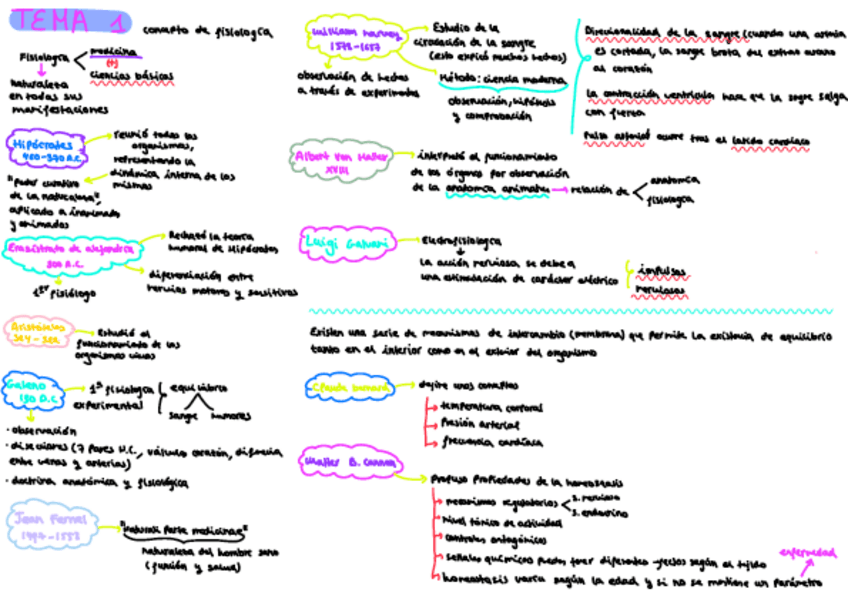 TEMA 1
concepto de fisiología
Fisiología
medicina
(+)
ciencias básicas
naturaleza
en todas sus
manifestaciones
Hipócrates
460-370 A.C.
reunió todos los
organismos,
representando la
dinámica interna de los
mismos
"poder curativo
de la naturaleza",
aplicado a inanimado
y animados
Erasístrato de alejandría
300 A.C.
Rechazó la teoría
humoral de Hipócrates
diferenciación entre
nervios motores y sensitivos
1er fisiólogo
Aristóteles
Estudió el
funcionamiento de los
organismos vivos
Galeno
130 D.C
1ª fisiología
experimental
equilibrio
sangre
humores
· observación
· disecciones (7 Pares N.C., válvulas corazón, difrencia
entre venas y arterias)
· doctrina anatómica y fisiológica
Jean Fernel
1497-1558
"Naturali parte medicinae"
naturaleza del hombre sano
(función y salud)
William Harvey
1578-1657
Estudio de la
circulación de la sangre
(esto explicó muchos hechos)
observación de hechos
a través de experimentos
Método: ciencia moderna
observación, hipótesis
y comprobación
Direccionalidad de la sangre (cuando una arteria
es cortada, la sangre brota del extremo cercano
al corazón
La contracción ventricular hace que la sangre salga
con fuerza
Pulso arterial ocurre tras el latido cardíaco
Albert von Haller
XVIII
interpretó el funcionamiento
de los órganos por observación
de la anatomía animales
relación de
anatomía
fisiología
Luigi Galvani
Electrofisiología
La acción nerviosa se debe a
una estimulación de carácter eléctrico
impulsos
nerviosos
Existen una serie de mecanismos de intercambio (membrana) que permite la existencia de equilibrio
tanto en el interior como en el exterior del organismo
Claude Bernard
define unos conceptos
temperatura corporal
Presión arterial
frecuencia cardíaca
Walter B. Cannon
Propuso Propiedades de la homeostasis
mecanismos regulatorios
S. nervioso
S. endocrino
Nivel tónico de actividad
controles antagónicos
señales químicas pueden tener diferentes efectos según el tejido
homeostasis varía según la edad y si no se mantiene un parámetro
enfermedad